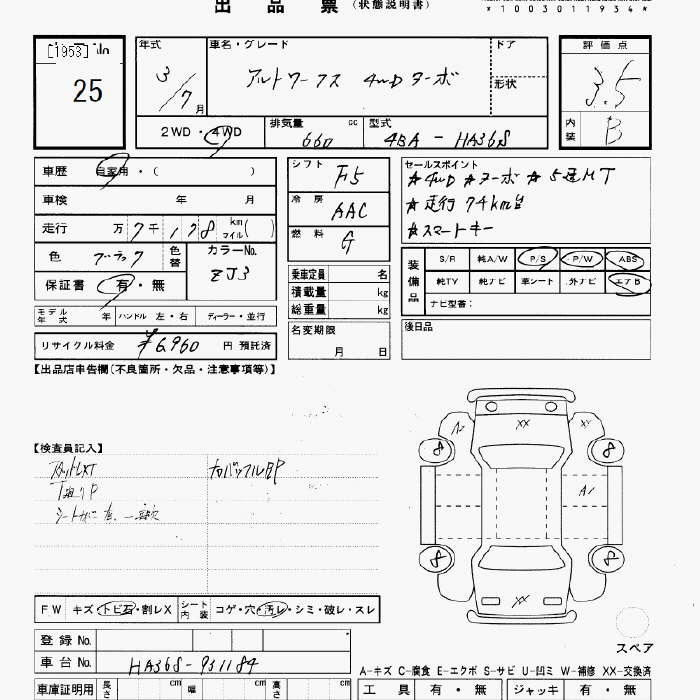 出品票 (状態説明書)
*1003011934*
[1953]
25
年式
3/7月
車名・グレード
アルトワークス 4WD ターボ
ドア
形状
評価点
3.5
内装
B
2WD・4WD
排気量 cc
660
型式
4BA - HA36S
車歴 自家用・( )
車検 年 月
走行 万 7千 178 km マイル( )
色 ブラック 色替
カラーNo.
ZJ3
保証書 有・無
モデル年式 年
ハンドル 左・右
ディーラー・並行
リサイクル料金 ¥6960 円 預託済
シフト F5
冷房 AAC
燃料 G
乗車定員 名
積載量 kg
総重量 kg
名変期限
月 日
セールスポイント
☆4WD ☆ターボ ☆5速MT
☆走行 74km台
☆スマートキー
装備品
S/R 純A/W P/S P/W ABS
純TV 純ナビ 車シート 外ナビ エアB
ナビ型番:
後日品
【出品店申告欄(不良箇所・欠品・注意事項等)】
【検査員記入】
FW キズ・トビ石・割レX
シート内装 コゲ・穴・汚レ・シミ・破レ・スレ
登録No.
車台No. HA36S-931184
XX
XY
A1
8
8
8
8
XX
スペア
A-キズ C-腐食 E-エクボ S-サビ U-凹ミ W-補修 XX-交換済
車庫証明用 長さ cm 幅 cm 高さ cm
工具 有・無
ジャッキ 有・無